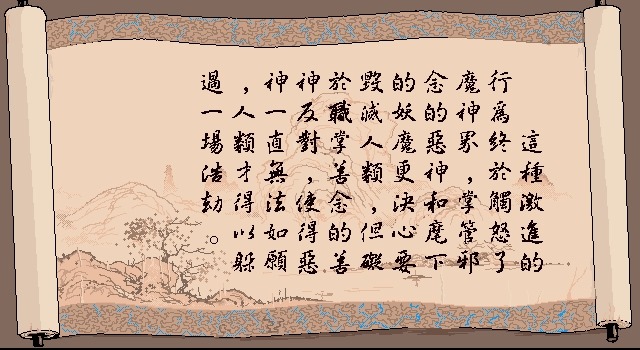 這種激進的
行爲終於觸怒了
魔神界，掌管邪
念的惡神和麾下
的妖魔更決心要
毀滅人類，但礙
於職掌善念的善
神反對，使得惡
神一直無法如願
，人類才得以躲
過一場浩劫。